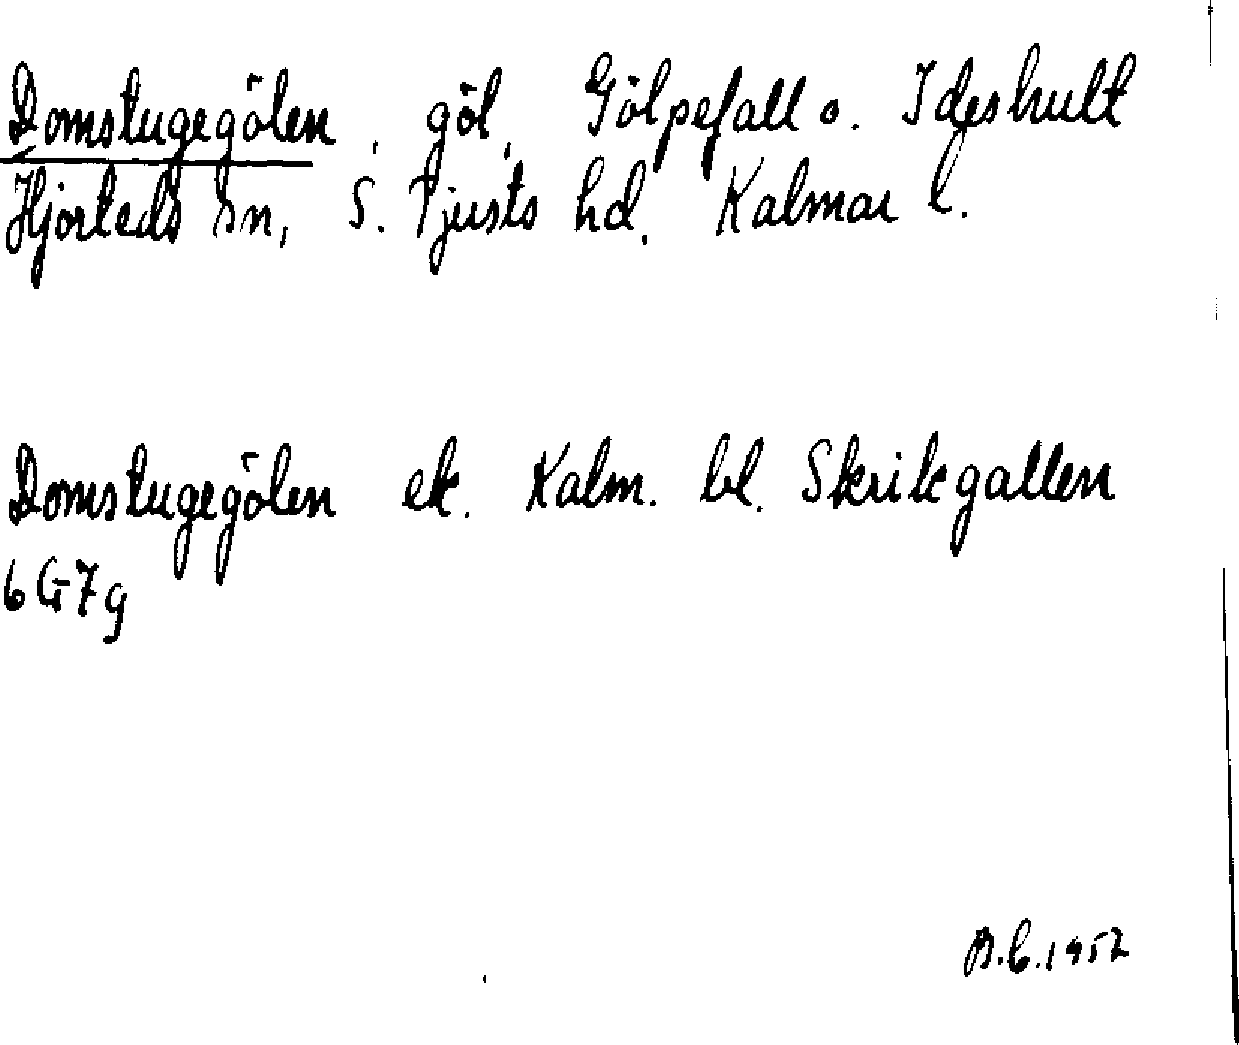 Domstugegölen, göl, Gölpefall o. Ideshult
Hjorteds sn, S. Tjusts hd. Kalmar l.
Domstugegölen ek. Kalm. bl. Skrikgallen
6G7g
B.C. 1952